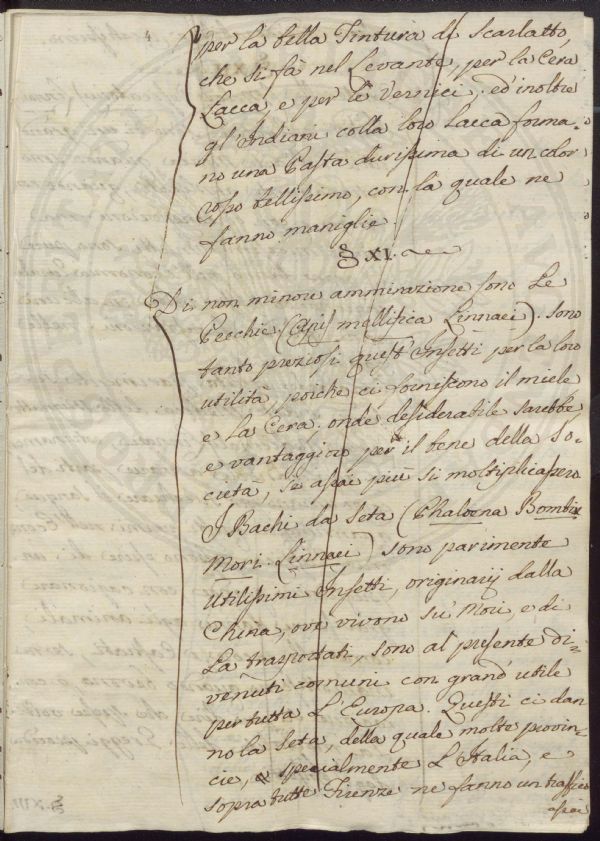 per la bella Tintura di Scarlatto,
che si fà nel Levante, per la Cera
Lacca, e per le Vernici; ed inoltre
gl'Indiani colla loro Lacca forma-
no una Pasta durissima di un color
roso bellissimo, con la quale ne
fanno maniglie.
§ XI.
Di non minore ammirazione sono Le
Pecchie (Apis mellifica Linnaei). sono
tanto preziosi quest'Insetti per la loro
utilità, poichè ci forniscono il miele
e La Cera; onde desiderabile sarebbe,
e vantaggioso per il bene della So-
cietà, se assai più si moltiplicassero
I Bachi da Seta (Phaloena Bombix
Mori Linnaei) sono parimente
Utilissimi Insetti, originarij dalla
China, ove vivono su' Mori, e di
La trasportati, sono al presente di-
venuti comuni con grand'utile
per tutta L'Europa. Questi ci dan
no la Seta, della quale molte provin-
cie, e specialmente L'Italia, e
sopra tutte Firenze ne fanno un traffico
assai